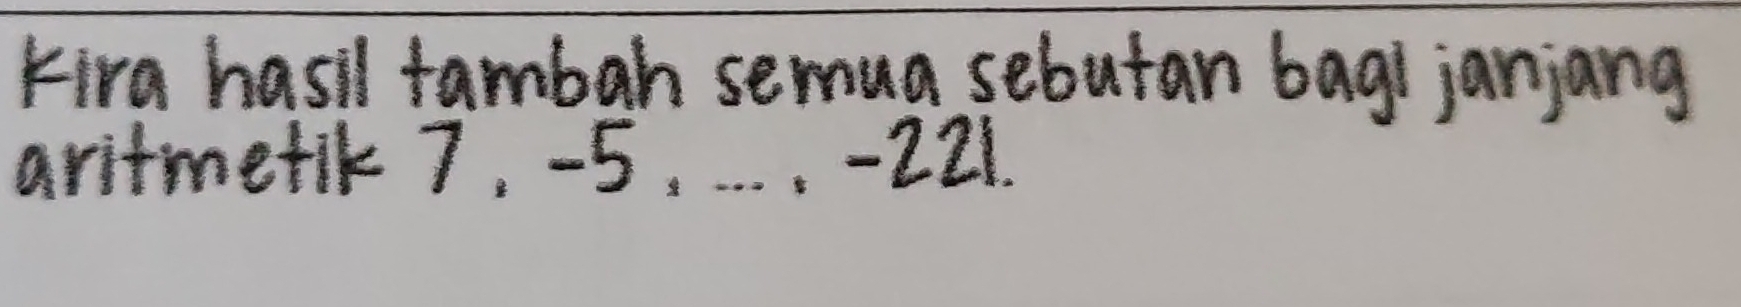 Kira hasil tambah semua sebutan bagi janjang
aritmetik 7, -5, ..., -221.